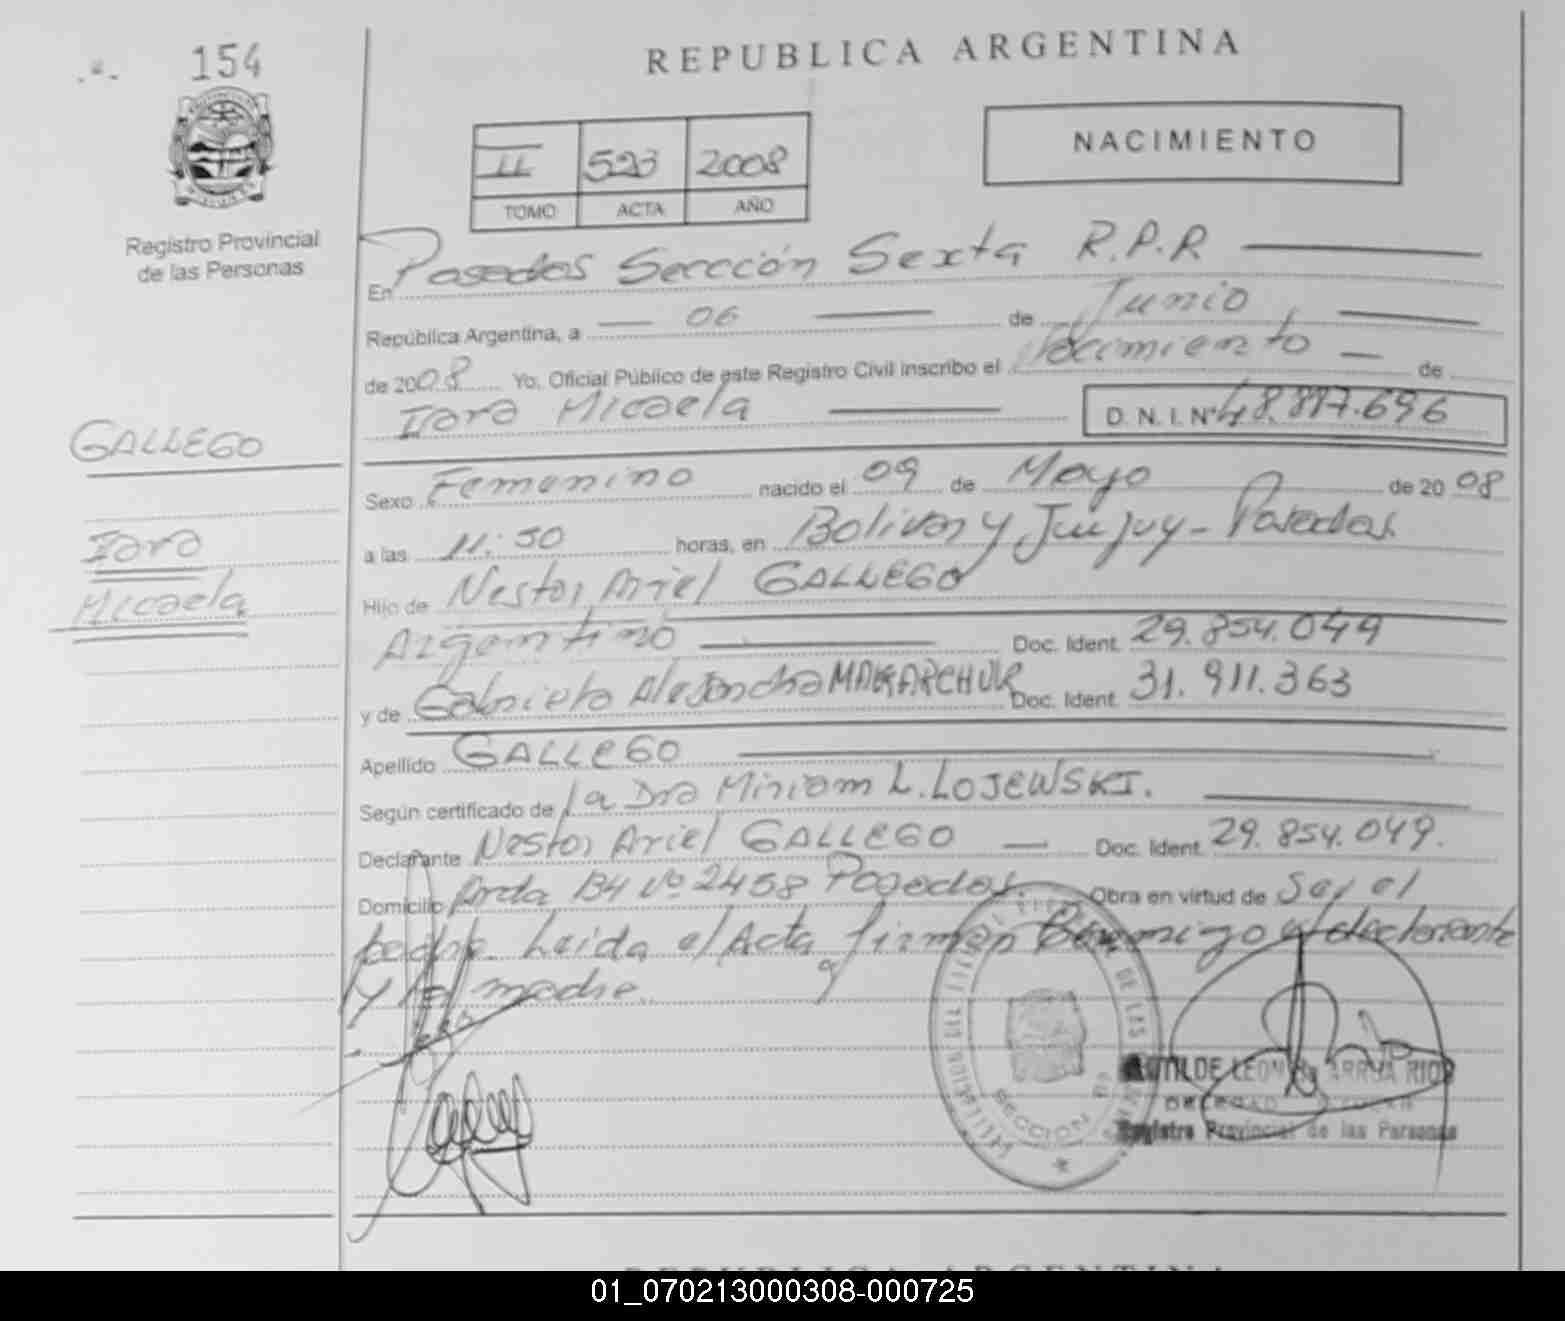 154
Registro Provincial
de las Personas
GALLEGO
Iara
Micaela
REPUBLICA ARGENTINA
II 523 2008
TOMO ACTA AÑO
NACIMIENTO
En Posadas Seccción Sexta R.P.R
República Argentina, a 06 de Junio
de 2008 Yo, Oficial Público de este Registro Civil inscribo el Nacimiento de
Iara Micaela D.N.I. Nº 48.887.696
Sexo Femenino nacido el 09 de Mayo de 2008
a las 11:50 horas, en Bolivar y Jujuy - Posadas.
Hijo de Nestor Ariel GALLEGO
Argentino Doc. Ident. 29.854.049
y de Gabriela Alejandra MAKARCHUK Doc. Ident. 31.911.363
Apellido GALLEGO
Según certificado de la Dra Miriam L. LOJEWSKI.
Declarante Nestor Ariel GALLEGO Doc. Ident. 29.854.049.
Domicilio Avda Nº 2458 Posadas. Obra en virtud de Ser el
padre. Leida el Acta, firman Conmigo el declarante
y la madre.
SECCION
LEON ARRUA RIOS
Registro Provincial de las Personas
REPUBLICA ARGENTINA
01_070213000308-000725